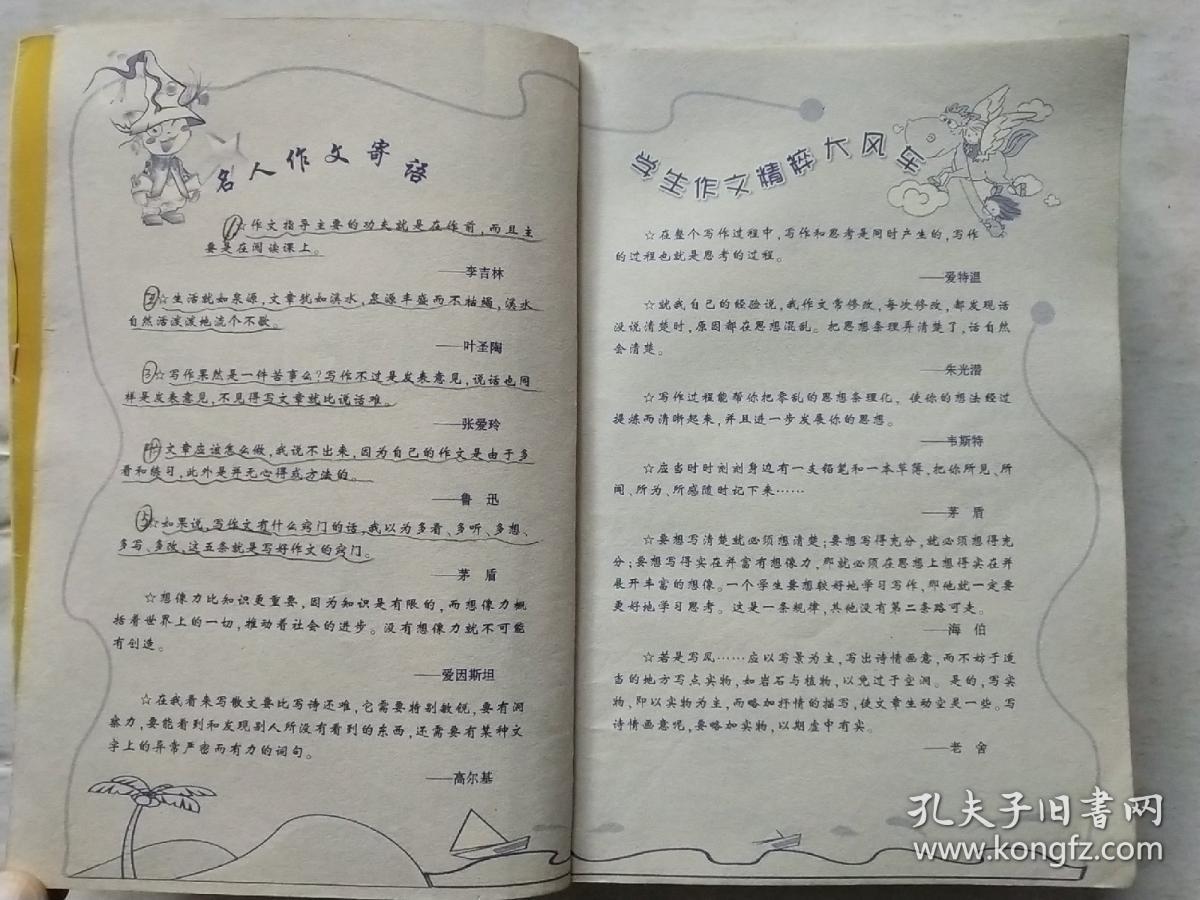 名人作文寄语
①☆作文指导主要的功夫就是在作前,而且主
要是在阅读课上。
——李吉林
②☆生活就如泉源,文章犹如溪水,泉源丰盛而不枯竭,溪水
自然活泼泼地流个不歇。
——叶圣陶
③☆写作果然是一件苦事么?写作不过是发表意见,说话也同
样是发表意见,不见得写文章就比说话难。
——张爱玲
文章应该怎么做,我说不出来,因为自己的作文是由于多
看和练习,此外是并无心得或方法的。
——鲁 迅
⑤☆如果说,写作文有什么窍门的话,我以为多看、多听、多想、
多写、多改,这五条就是写好作文的窍门。
——茅 盾
☆想像力比知识更重要,因为知识是有限的,而想像力概
括着世界上的一切,推动着社会的进步。没有想像力就不可能
有创造。
——爱因斯坦
☆在我看来写散文要比写诗还难,它需要特别敏锐,要有洞
察力,要能看到和发现别人所没有看到的东西,还需要有某种文
字上的异常严密而有力的词句。
——高尔基
学生作文精粹大风车
☆在整个写作过程中,写作和思考是同时产生的,写作
的过程也就是思考的过程。
——爱特温
☆就我自己的经验说,我作文常修改,每次修改,都发现话
没说清楚时,原因都在思想混乱。把思想条理弄清楚了,话自然
会清楚。
——朱光潜
☆写作过程能帮你把零乱的思想条理化,使你的想法经过
提炼而清晰起来,并且进一步发展你的思想。
——韦斯特
☆应当时时刻刻身边有一支铅笔和一本草簿,把你所见、所
闻、所为、所感随时记下来……
——茅 盾
☆要想写清楚就必须想清楚;要想写得充分,就必须想得充
分;要想写得实在并富有想像力,那就必须在思想上想得实在并
展开丰富的想像。一个学生要想较好地学习写作,那他就一定要
更好地学习思考。这是一条规律,其他没有第二条路可走。
——海 伯
☆若是写风……应以写景为主,写出诗情画意,而不妨于适
当的地方写点实物,如岩石与植物,以免过于空洞。是的,写实
物,即以实物为主,而略加抒情的描写,使文章生动空灵一些。写
诗情画意呢,要略加实物,以期虚中有实。
——老 舍
孔夫子旧书网
www.kongfz.com